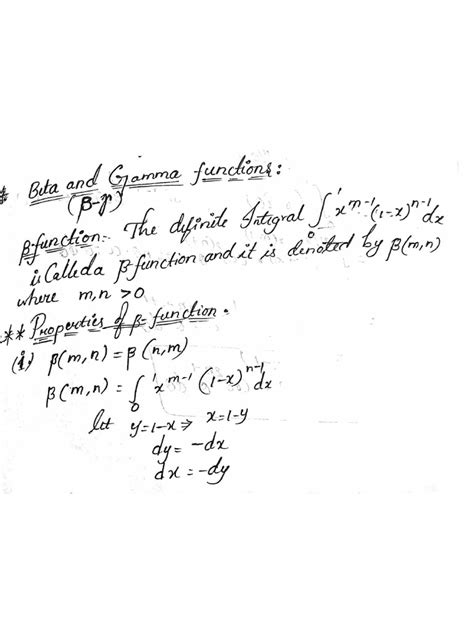 * Beta and Gamma functions:
(β-γ)
β-function:- The definite Integral ∫₀¹ x^{m-1} (1-x)^{n-1} dx
is Called a β function and it is denoted by β(m,n)
where m,n >0
** Properties of β-function.
(i) β(m,n) = β(n,m)
β(m,n) = ∫₀¹ x^{m-1} (1-x)^{n-1} dx
let y=1-x ⇒ x=1-y
dy = -dx
dx = -dy